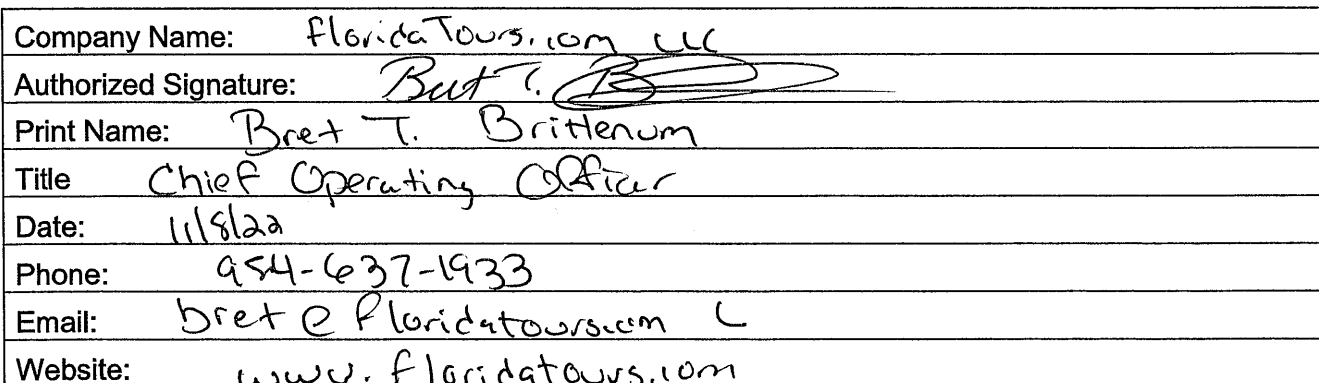 Company Name: FloridaTours.com LLC
Authorized Signature: Bret T. B
Print Name: Bret T. Brittenum
Title Chief Operating Officer
Date: 11/8/22
Phone: 954-637-1933
Email: bret@floridatours.com
Website: www.floridatours.com